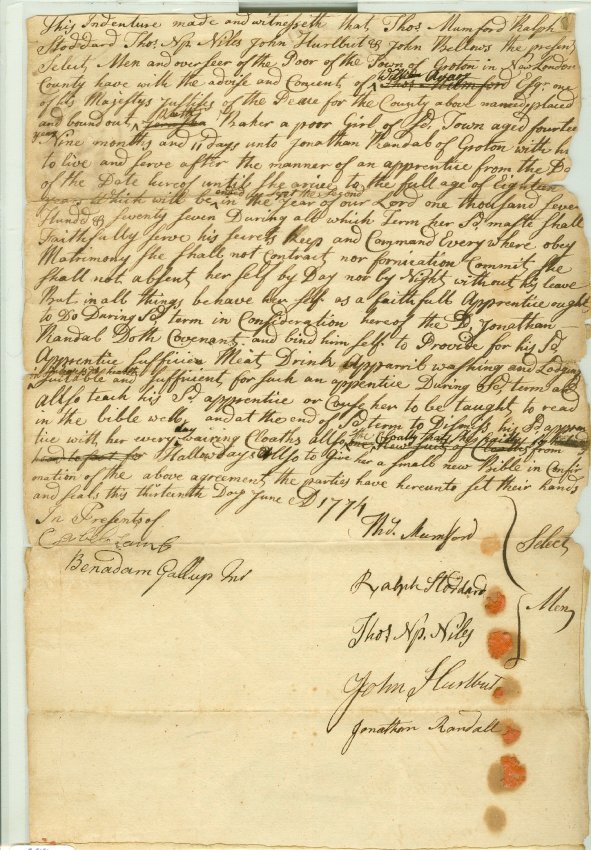 This Indenture made and witnesseth that Thos Mumford Ralph
Stoddard Thos Np. Niles John Hurlbut & John Bellows the present
Select Men and overseer of the Poor of the Town of Groton in New London
County have with the advise and Concent of William Avary Esqr. one
of his Majestys Justises of the Peace for the County above named placed
and bound out Baker a poor Girl of Sd. Town aged fourteen
years Nine months and 11 days unto Jonathan Randal of Groton with him
to live and Serve after the manner of an apprentice from the Day
of the Date hereof until she arive to the full age of Eighteen
years which will be in the year of our Lord one thousand Seven
Hundd & Seventy Seven During all which Term her Sd. maste Shall
Faithfully Serve his Secrets Keep and Command Every where obey
Matrimony she Shall not Contract nor fornication Commit She
Shall not absent her self by Day nor by Night without his leave
But in all things behave her self as a faithfull Apprentice ought
to Do During Sd. term in Consideration hereof the Sd. Jonathan
Randal Doth Covenant and bind him self to Provide for his Sd.
Apprentice Sufficien Meat Drink Apparril washing and Lodging
in sickness & health
Suitable and Sufficient for such an apentice During Sd. term and
Allso teach his Sd. apprentice or Couse her to be taught to read
in the bible well, and at the end of Sd. term to Dismiss his Sd. appren
tice with her every day wairing Cloaths allso
for Halloweday Allso to give her a small new Bible in Confir
mation of the above agreement the parties have hereunto set their hands
and seals this thirteenth Day June AD 1774
In Presents of
Benadam Gallup Jnr
Thos. Mumford
Select
Ralph Stoddard
Men
Thos Np. Niles
John Hurlbut
Jonathan Randall